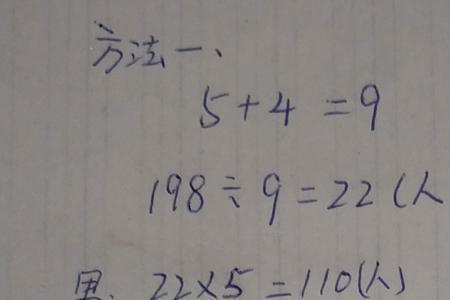 方法一、
5+4=9
198÷9=22(人
男、22×5=110(人)